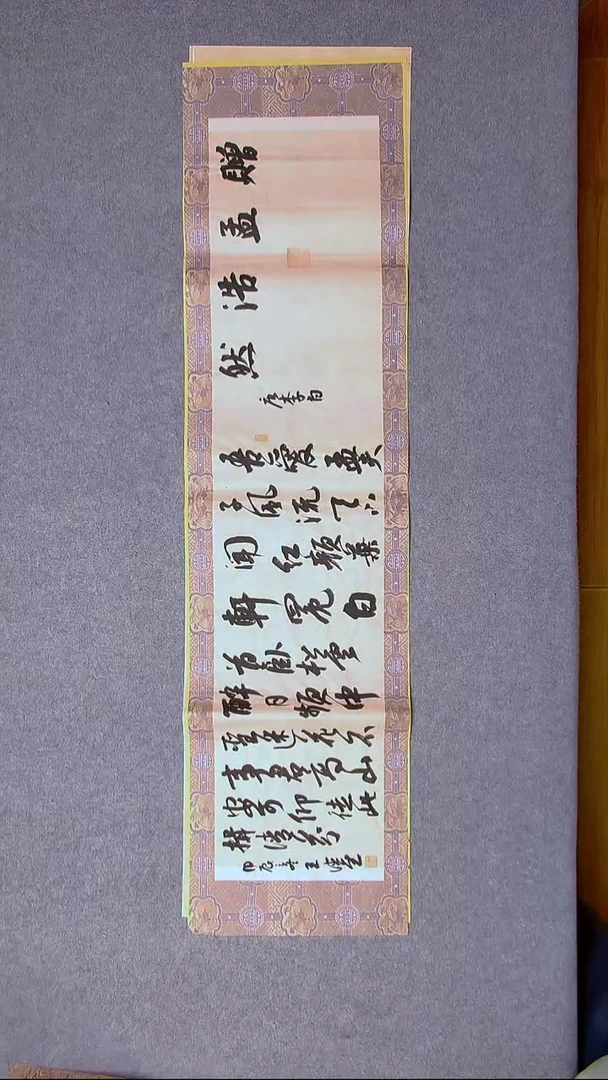 贈孟浩然
唐李白
吾愛孟夫
子風流天下
聞紅顏棄
軒冕白
首臥松雲
醉月頻中
聖迷花不
事君高山
安可仰徒此
揖清芬